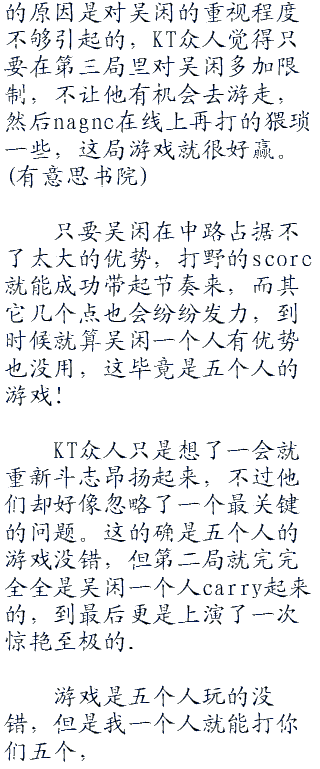 的原因是对吴闲的重视程度
不够引起的，KT众人觉得只
要在第三局里对吴闲多加限
制，不让他有机会去游走，
然后nagne在线上再打的猥琐
一些，这局游戏就很好赢。
(有意思书院)
只要吴闲在中路占据不
了太大的优势，打野的score
就能成功带起节奏来，而其
它几个点也会纷纷发力，到
时候就算吴闲一个人有优势
也没用，这毕竟是五个人的
游戏！
KT众人只是想了一会就
重新斗志昂扬起来，不过他
们却好像忽略了一个最关键
的问题。这的确是五个人的
游戏没错，但第二局就完完
全全是吴闲一个人carry起来
的，到最后更是上演了一次
惊艳至极的.
游戏是五个人玩的没
错，但是我一个人就能打你
们五个，